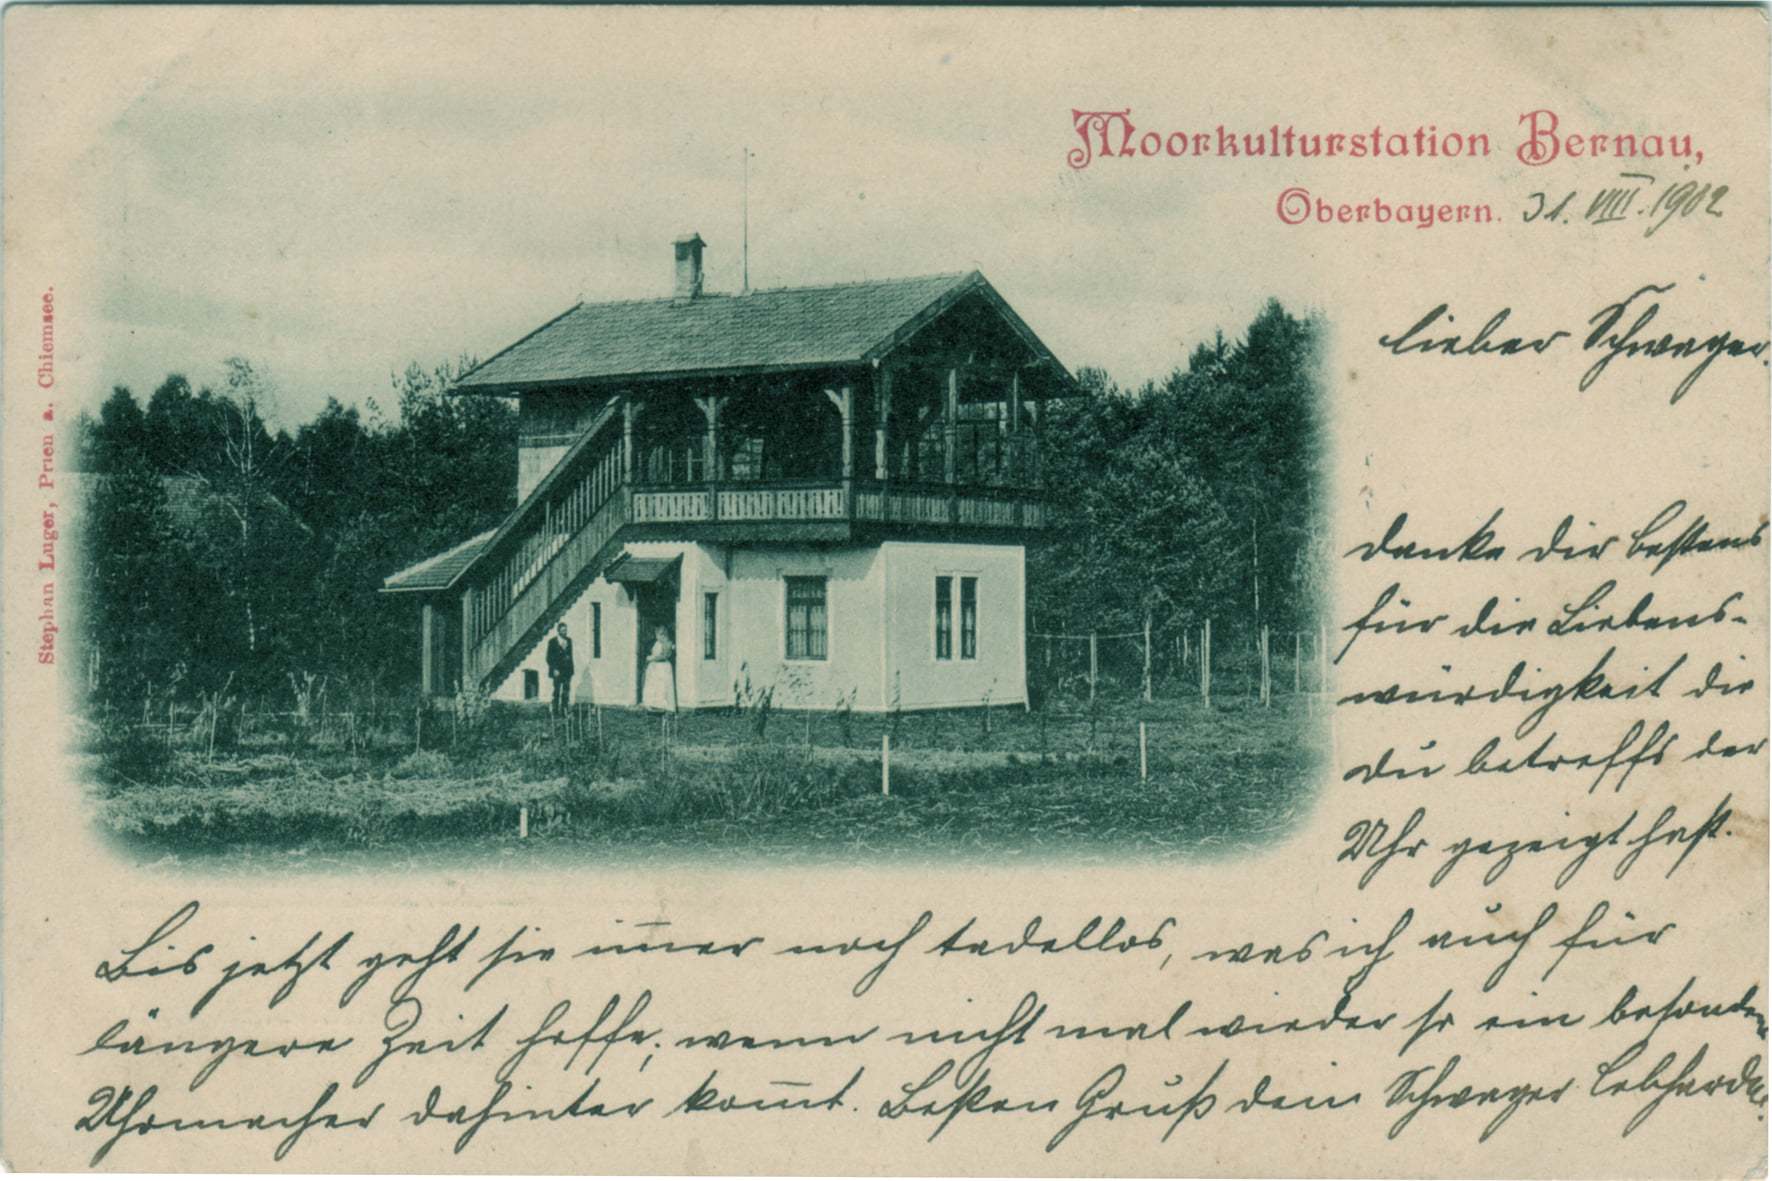 Moorkulturstation Bernau,
Oberbayern. 31. VIII. 1902
Stephan Luger, Prien a. Chiemsee.
lieber Schwager.
danke dir bestens
für die Liebens-
würdigkeit die
du betreffs der
Uhr gezeigt hast.
Bis jetzt geht sie im̅er noch tadellos, was ich auch für
längere Zeit hoffe; wenn nicht mal wieder so ein besonderer
Uhrmacher dahinter kom̅t. Besten Gruß dein Schwager